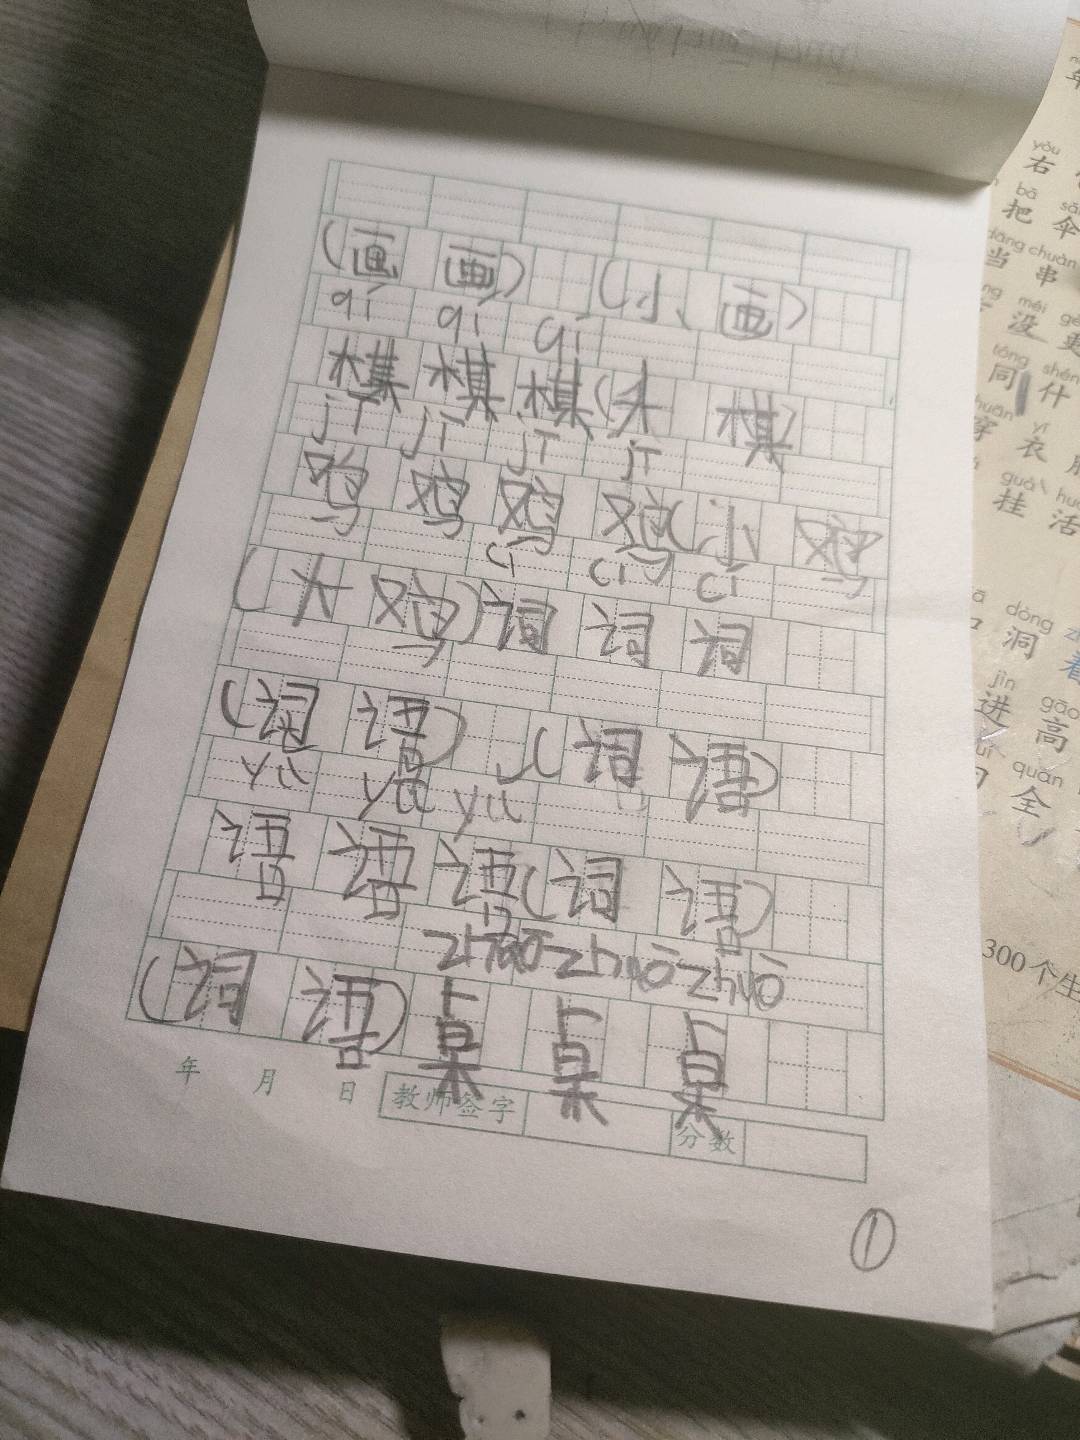 (画 画) (小 画)
qí qí qí
棋 棋 棋 (木 棋)
jī jī jī jī
鸡 鸡 鸡 鸡 (小 鸡)
cí cí cí
(大 鸡) 词 词 词
(词 语) (词 语)
yǔ yǔ yǔ
语 语 语 (词 语)
zhuō zhuō zhuō
(词 语) 桌 桌 桌
年 月 日 教师签字 分数
①
yòu
右
bǎ sǎn
把 伞
dāng chuàn
当 串
méi gèng
没 更
tóng shén
同 什
yī
衣
guà huó
挂 活
dòng
洞 看
jìn gāo
进 高
quán
全
300个生